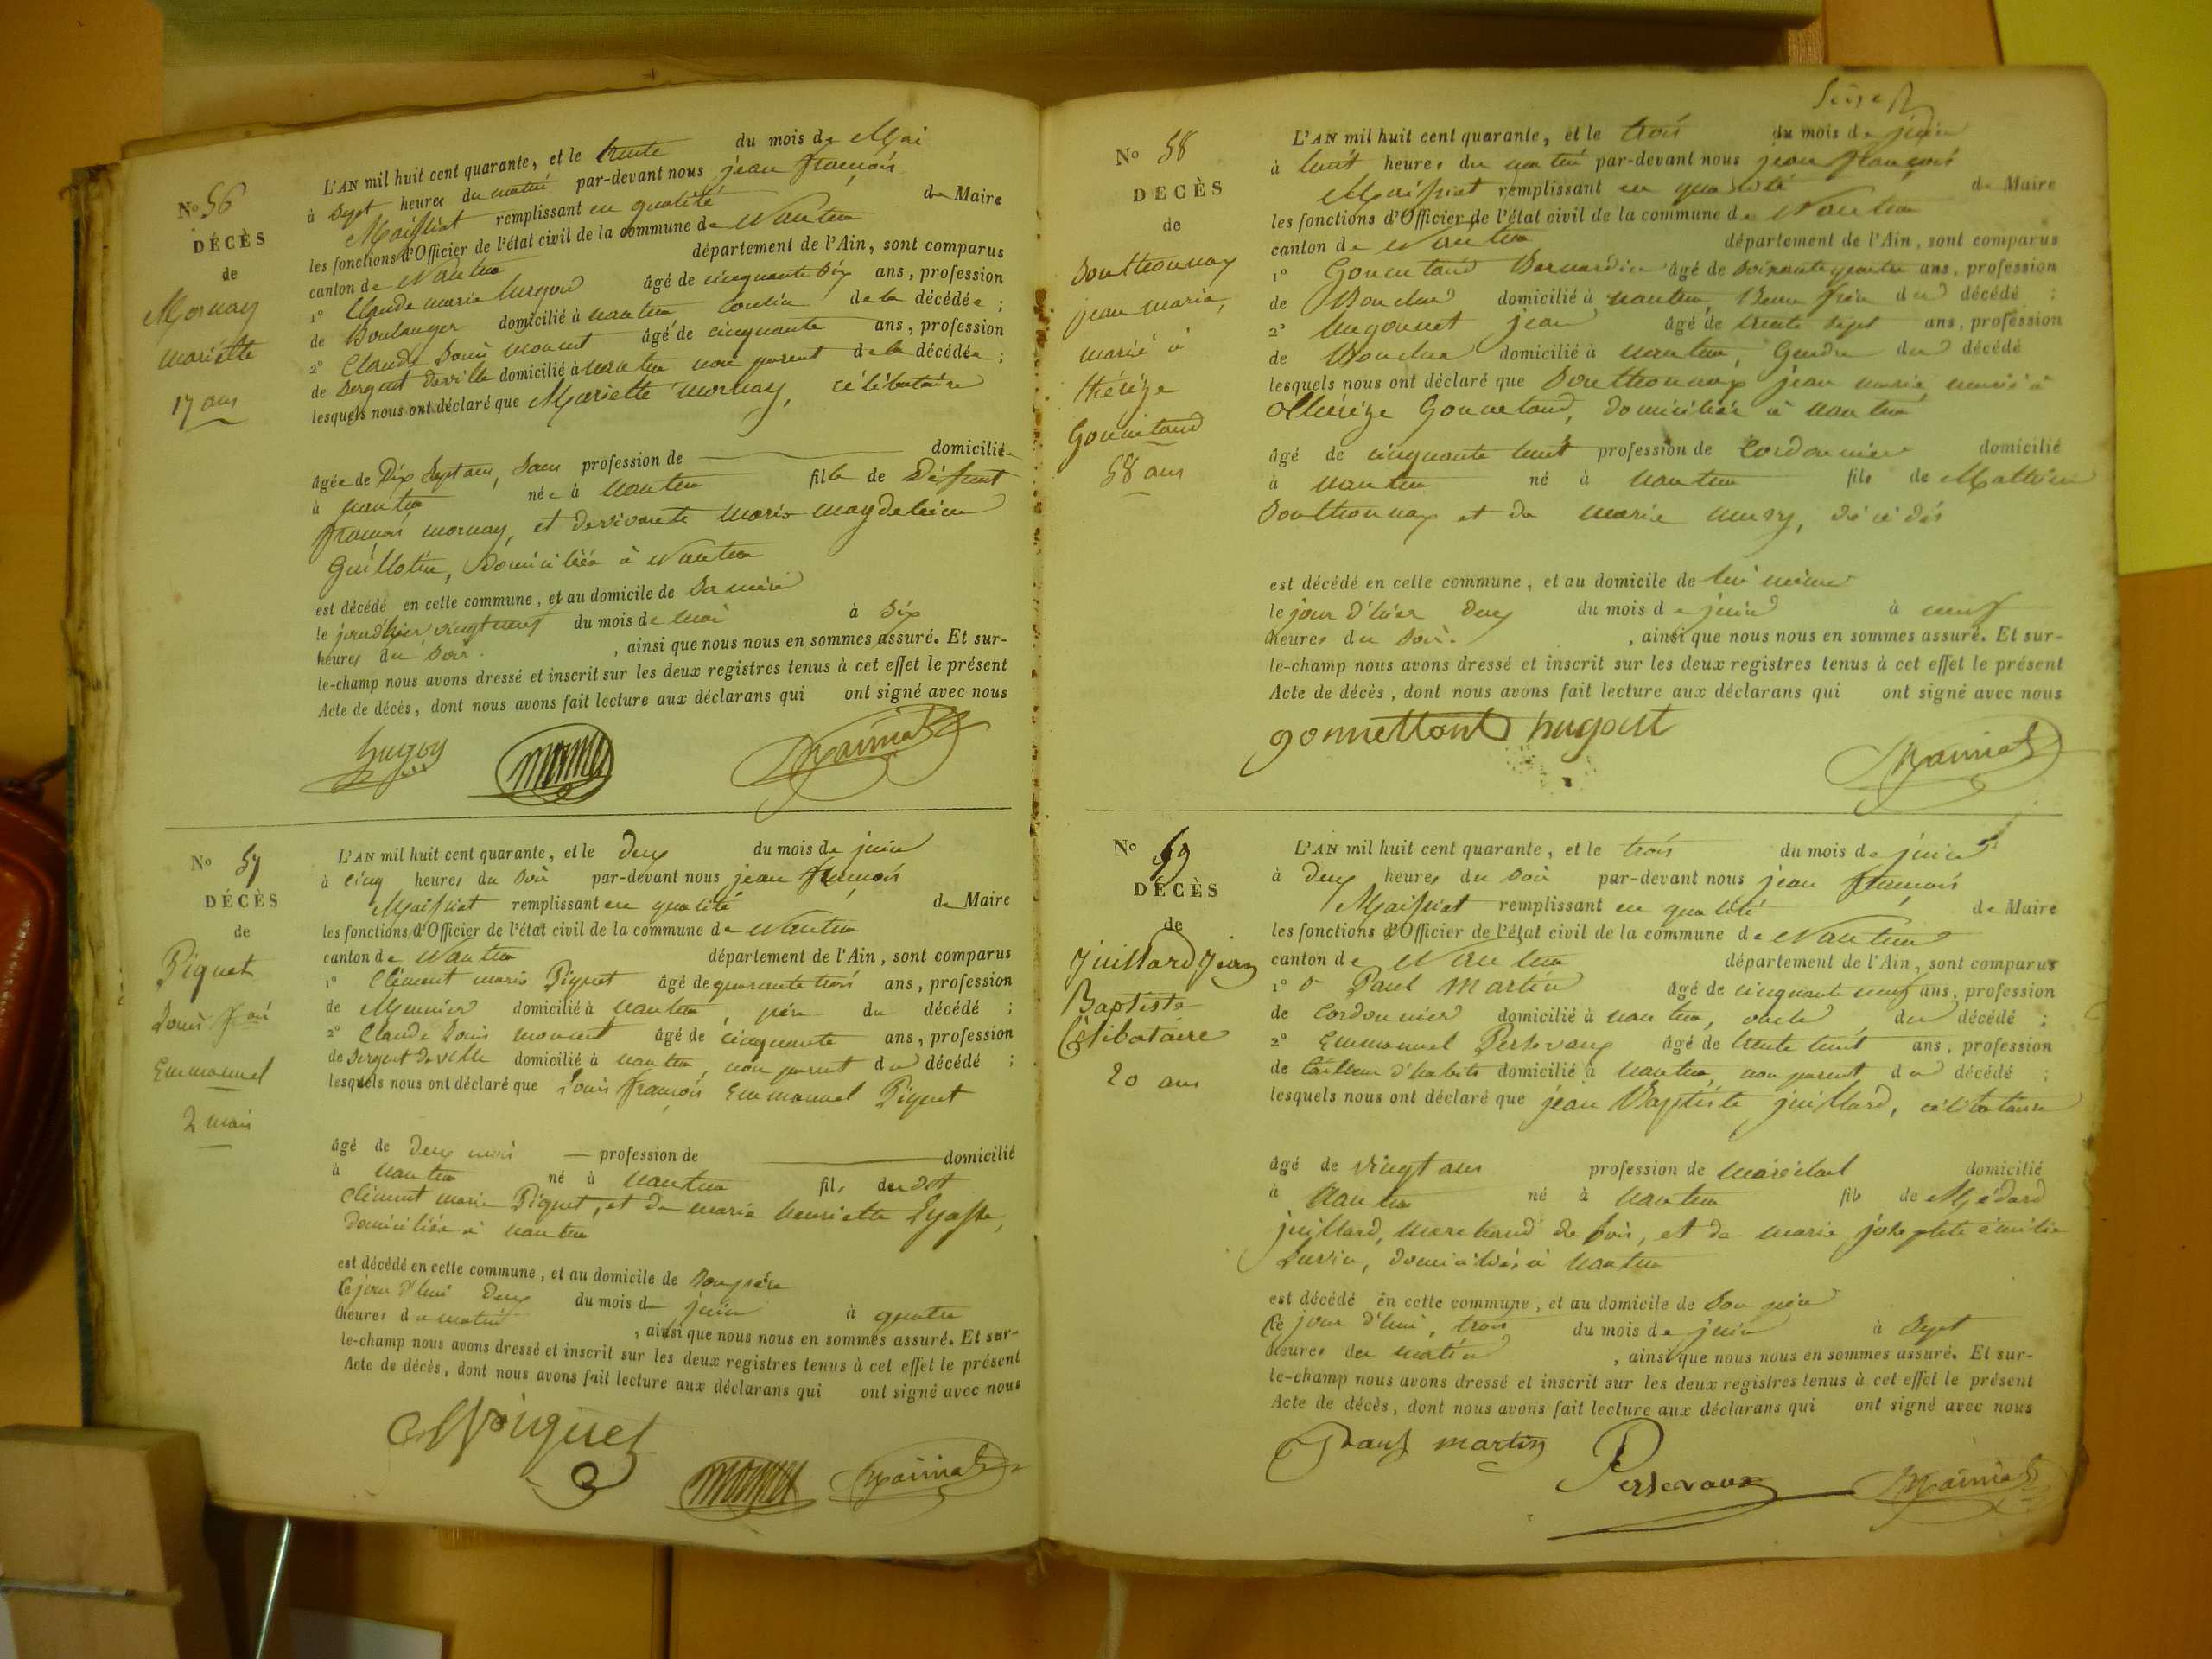 No 56
DÉCÈS
de
Mornay
mariette
17 ans
L'AN mil huit cent quarante, et le trente du mois de Mai
à Sept heures du matin par-devant nous jean françois
Maissiat remplissant en qualité de Maire
les fonctions d'Officier de l'état civil de la commune de Nantua
canton de Nantua département de l'Ain, sont comparus
1° Claude marie hugon âgé de cinquante six ans, profession
de Boulanger domicilié à nantua cousin de la décédée ;
2° Claude Louis monnet âgé de cinquante ans, profession
de Sergent deville domicilié à nantua non parent de la décédée ;
lesquels nous ont déclaré que Mariette mornay, célibataire
âgée de Dix Sept ans, Sans profession de domiciliée
à nantua née à nantua fille de Défunt
françois mornay, et devivante marie magdeleine
Guillotin, Domiciliée à Nantua
est décédé en cette commune, et au domicile de Samère
le jourd'hier vingt neuf du mois de mai à Six
heures du Soir. , ainsi que nous nous en sommes assuré. Et sur-
le-champ nous avons dressé et inscrit sur les deux registres tenus à cet effet le présent
Acte de décès, dont nous avons fait lecture aux déclarans qui ont signé avec nous
No 57
DÉCÈS
de
Piguet
Louis f.ois
Emmanuel
2 mois
L'AN mil huit cent quarante, et le deux du mois de juin
à cinq heures du Soir par-devant nous jean françois
Maissiat remplissant en qualité de Maire
les fonctions d'Officier de l'état civil de la commune de Nantua
canton de Nantua département de l'Ain, sont comparus
1° Clément marie Piguet âgé de quarante trois ans, profession
de Meunier domicilié à nantua, père du décédé ;
2° Claude Louis monnet âgé de cinquante ans, profession
de Sergent deville domicilié à nantua, non parent du décédé ;
lesquels nous ont déclaré que Louis françois Emmanuel Piguet
âgé de deux mois profession de domicilié
à nantua né à nantua fils dudit
Clément marie Piguet, et de marie henriette
domiciliés à nantua
est décédé en cette commune, et au domicile de Son père
Ce jour d'hui deux du mois de juin à quatre
heures du matin , ainsi que nous nous en sommes assuré. Et sur-
le-champ nous avons dressé et inscrit sur les deux registres tenus à cet effet le présent
Acte de décès, dont nous avons fait lecture aux déclarans qui ont signé avec nous
Piguet
No 58
DÉCÈS
de
Douthonnay
jean marie,
marié à
thérèze
Gonnetand
58 ans
L'AN mil huit cent quarante, et le trois du mois de juin
à huit heures du matin par-devant nous jean françois
Maissiat remplissant en qualité de Maire
les fonctions d'Officier de l'état civil de la commune de Nantua
canton de Nantua département de l'Ain, sont comparus
1° Gonnetand Bernardin âgé de Soixante quatre ans, profession
de domicilié à nantua, Beau frère du décédé ;
2° hugonnet jean âgé de trente Sept ans, profession
de domicilié à nantua, Gendre du décédé
lesquels nous ont déclaré que Douthonnay jean marie, marié à
thérèze Gonnetand, domiciliée à nantua
âgé de cinquante huit profession de Cordonnier domicilié
à nantua né à nantua fils de Mathieu
Douthonnay et de marie, décédés
est décédé en cette commune, et au domicile de lui même
le jour d'hier deux du mois de juin à neuf
heures du Soir. , ainsi que nous nous en sommes assuré. Et sur-
le-champ nous avons dressé et inscrit sur les deux registres tenus à cet effet le présent
Acte de décès, dont nous avons fait lecture aux déclarans qui ont signé avec nous
No 59
DÉCÈS
de
Juillard Jean
Baptiste
Célibataire
20 ans
L'AN mil huit cent quarante, et le trois du mois de juin
à deux heures du Soir par-devant nous jean françois
Maissiat remplissant en qualité de Maire
les fonctions d'Officier de l'état civil de la commune de Nantua
canton de Nantua département de l'Ain, sont comparus
1° Paul Martin âgé de cinquante neuf ans, profession
de Cordonnier domicilié à nantua, oncle du décédé ;
2° Emmanuel Persevaux âgé de trente huit ans, profession
de tailleur d'habits domicilié à nantua, non parent du décédé ;
lesquels nous ont déclaré que jean Baptiste juillard, célibataire
âgé de vingt ans profession de maréchal domicilié
à Nantua né à nantua fils de Médard
juillard, marchand de bois, et de marie josephte émilie
domiciliés à nantua
est décédé en cette commune, et au domicile de Son père
Ce jour d'hui, trois du mois de juin à Sept
heures du matin , ainsi que nous nous en sommes assuré. Et sur-
le-champ nous avons dressé et inscrit sur les deux registres tenus à cet effet le présent
Acte de décès, dont nous avons fait lecture aux déclarans qui ont signé avec nous
Paul martin Persevaux